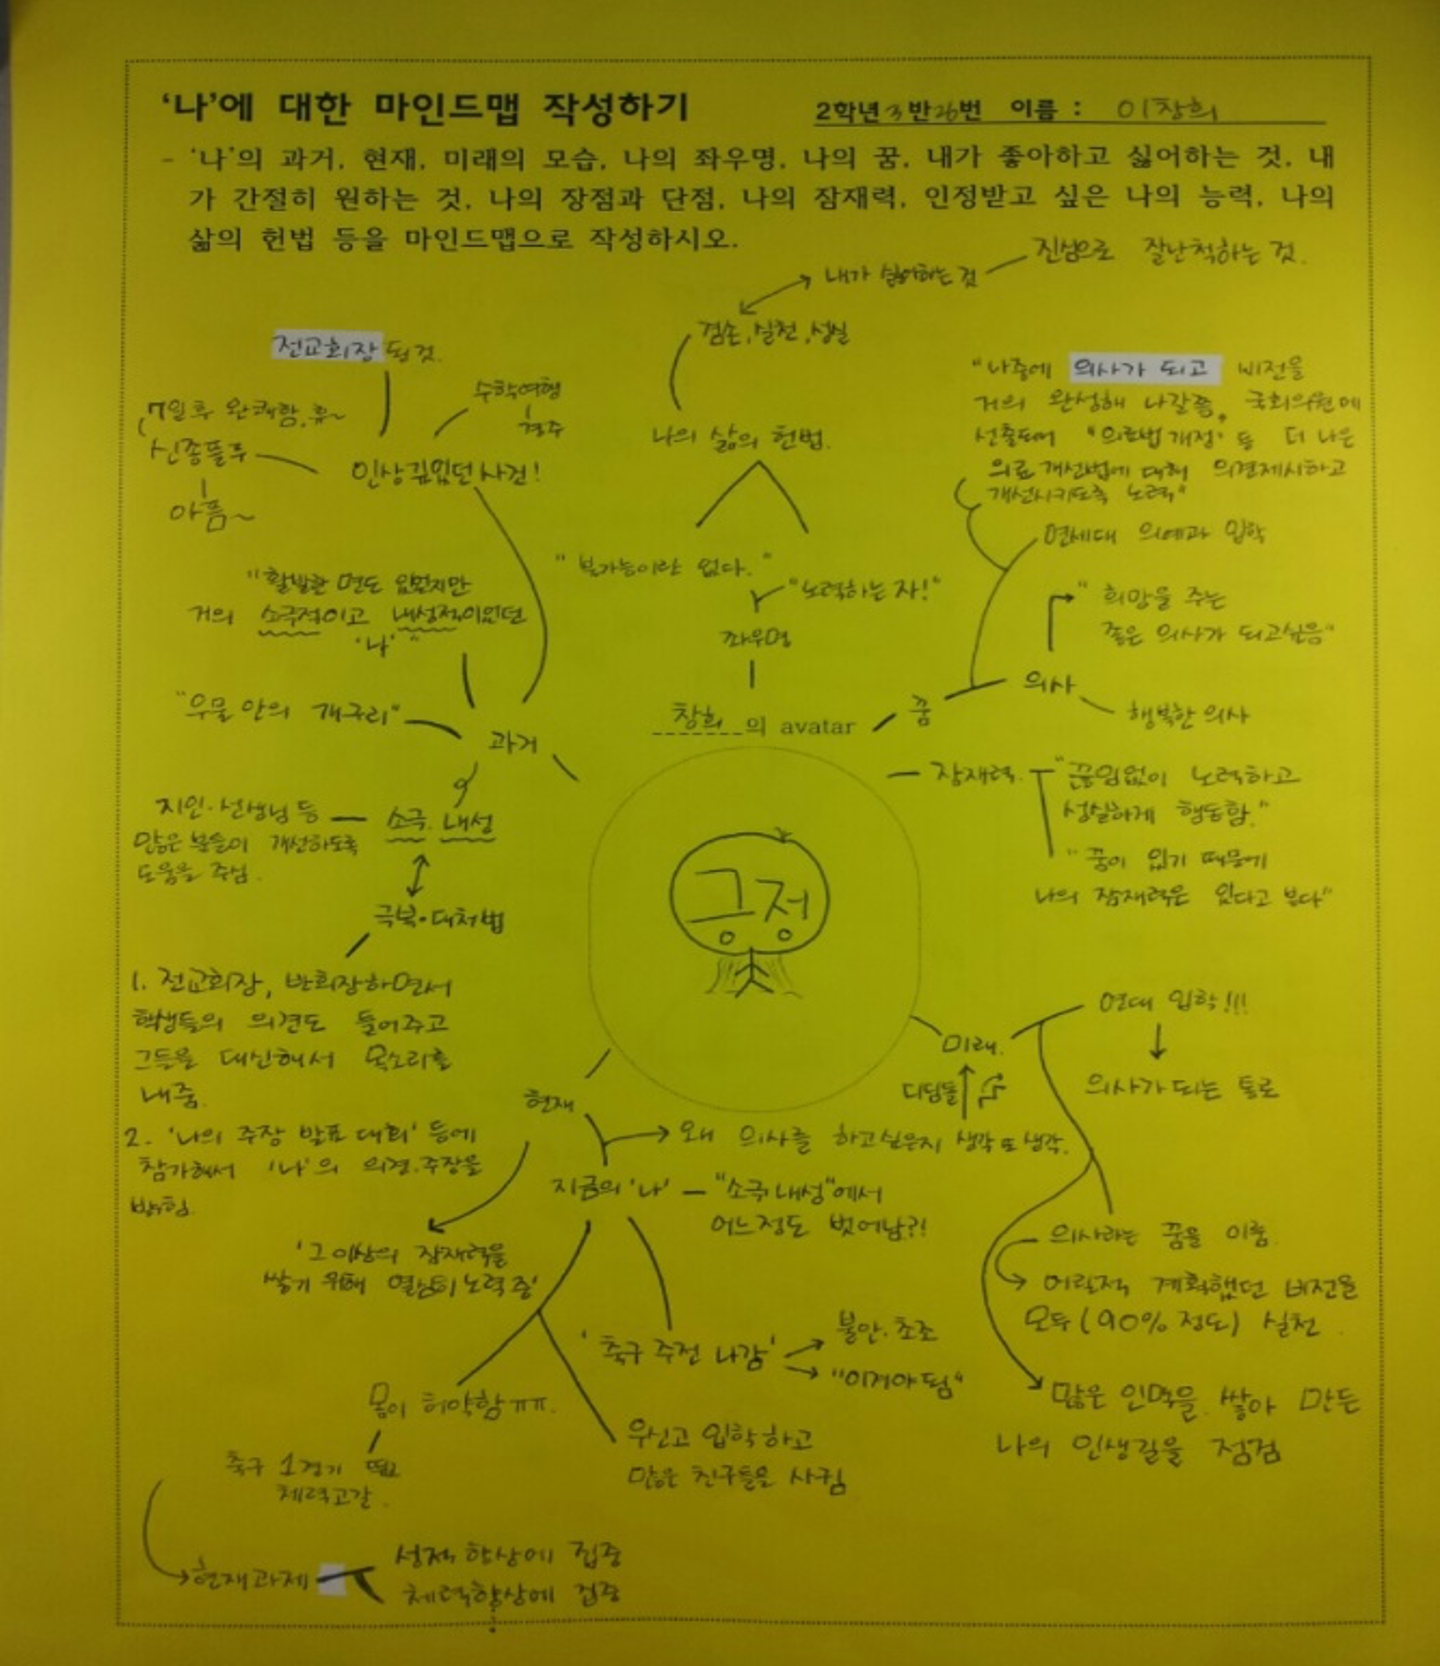 '나'에 대한 마인드맵 작성하기
2학년 3반 26번 이름 : 이창희
- '나'의 과거, 현재, 미래의 모습, 나의 좌우명, 나의 꿈, 내가 좋아하고 싫어하는 것, 내
가 간절히 원하는 것, 나의 장점과 단점, 나의 잠재력, 인정받고 싶은 나의 능력, 나의
삶의 헌법 등을 마인드맵으로 작성하시오.
진심으로 잘난척하는 것.
내가 싫어하는 것
겸손, 실천, 성실
나의 삶의 헌법.
"불가능이란 없다."
"노력하는 자!"
좌우명
창희의 avatar
긍정
전교회장 된 것.
수학여행
경주
7일 후 완쾌함, 휴~
신종플루
아픔~
인상깊었던 사건!
"활발한 면도 있었지만
거의 소극적이고 내성적이었던
'나'"
"우물 안의 개구리"
과거
소극. 내성
지인·선생님 등
많은 분들이 개선하도록
도움을 주심.
극복·대처법
1. 전교회장, 반회장하면서
학생들의 의견도 들어주고
그들을 대신해서 목소리를
내줌.
2. '나의 주장 발표 대회' 등에
참가해서 '나'의 의견·주장을
밝힘.
"나중에 의사가 되고 비전을
거의 완성해 나갈쯤, 국회의원에
선출되어 "의료법 개정" 등 더 나은
의료 개선법에 대해 의견제시하고
개선시키도록 노력"
연세대 의예과 입학
"희망을 주는
좋은 의사가 되고싶음"
꿈
의사
행복한 의사
잠재력.
"끊임없이 노력하고
성실하게 행동함."
"꿈이 있기 때문에
나의 잠재력은 있다고 본다"
미래.
연대 입학!!!
의사가 되는 통로
디딤돌
의사라는 꿈을 이룸.
어릴적 계획했던 비전을
모두 (90% 정도) 실천.
많은 인맥을 쌓아 만든
나의 인생길을 점검
현재
왜 의사를 하고싶은지 생각 또 생각.
지금의 '나'
"소극·내성"에서
어느정도 벗어남?!
'그 이상의 잠재력을
쌓기 위해 열심히 노력 중'
'축구 주전 나감'
불안·초조
"이겨야 됨"
몸이 허약함 ㅠㅠ.
축구 1경기 뛰고
체력고갈.
우신고 입학하고
많은 친구들을 사귐
현재과제
성적 향상에 집중
체력향상에 집중